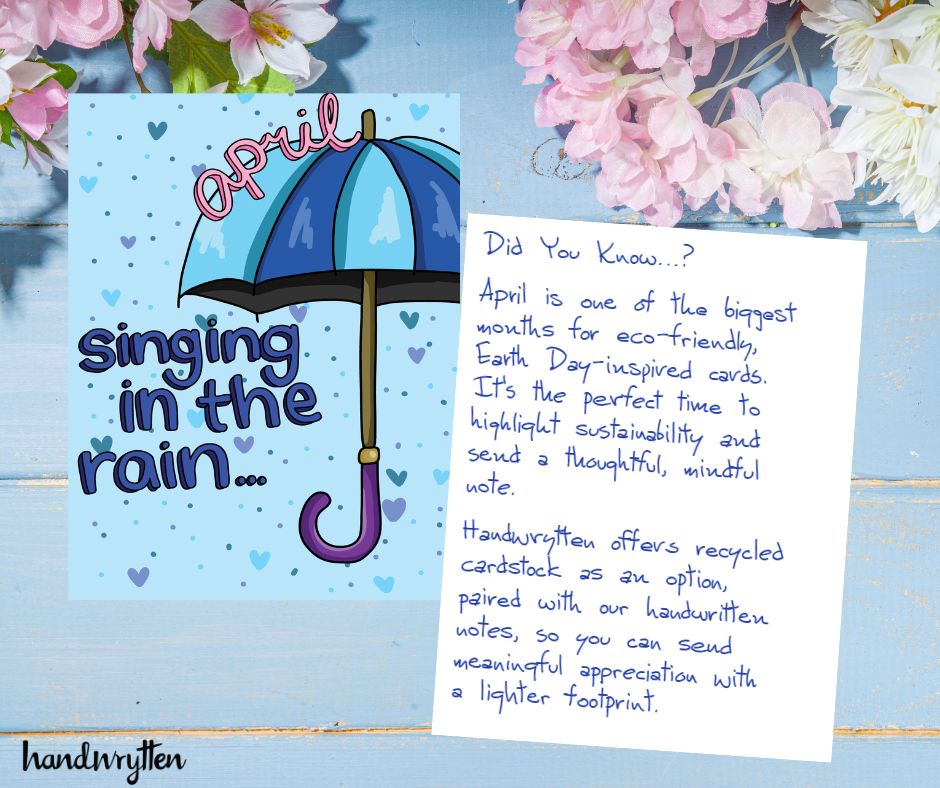 april
singing
in the
rain...
Did You Know...?
April is one of the biggest
months for eco-friendly,
Earth Day-inspired cards.
It's the perfect time to
highlight sustainability and
send a thoughtful, mindful
note.
Handwrytten offers recycled
cardstock as an option,
paired with our handwritten
notes, so you can send
meaningful appreciation with
a lighter footprint.
handwrytten